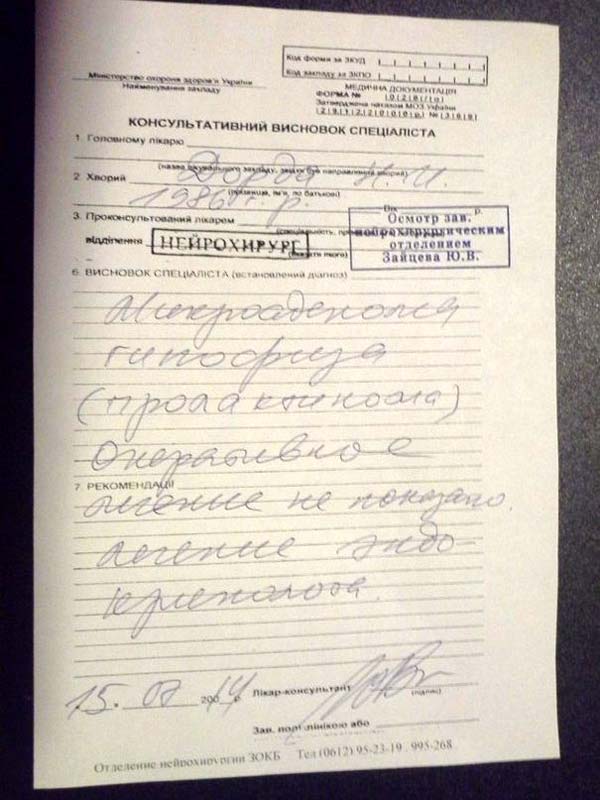 Код форми за ЗКУД
Код закладу за ЗКПО
Міністерство охорони здоров'я України
Найменування закладу
МЕДИЧНА ДОКУМЕНТАЦІЯ
ФОРМА № 028/о
Затверджена наказом МОЗ України
29122000р. № 369
КОНСУЛЬТАТИВНИЙ ВИСНОВОК СПЕЦІАЛІСТА
1. Головному лікарю
(назва лікувального закладу, звідки був направлений хворий)
2. Хворий Н. И.
(прізвище, ім'я, по батькові)
1986 г. р.
Вік р.
3. Проконсультований лікарем
відділення НЕЙРОХИРУРГ
Осмотр зав.
нейрохирургическим
отделением
Зайцева Ю.В.
6. ВИСНОВОК СПЕЦІАЛІСТА (встановлений діагноз)
Микроаденома
гипофиза
(пролактинома)
Оперативное
7. РЕКОМЕНДАЦІЇ
лечение не показано.
лечение эндо-
кринолога.
15. 07 200 14 р. Лікар-консультант
(підпис)
Зав. поліклінікою або
Отделение нейрохирургии ЗОКБ Тел (0612) 95-23-19 . 995-268